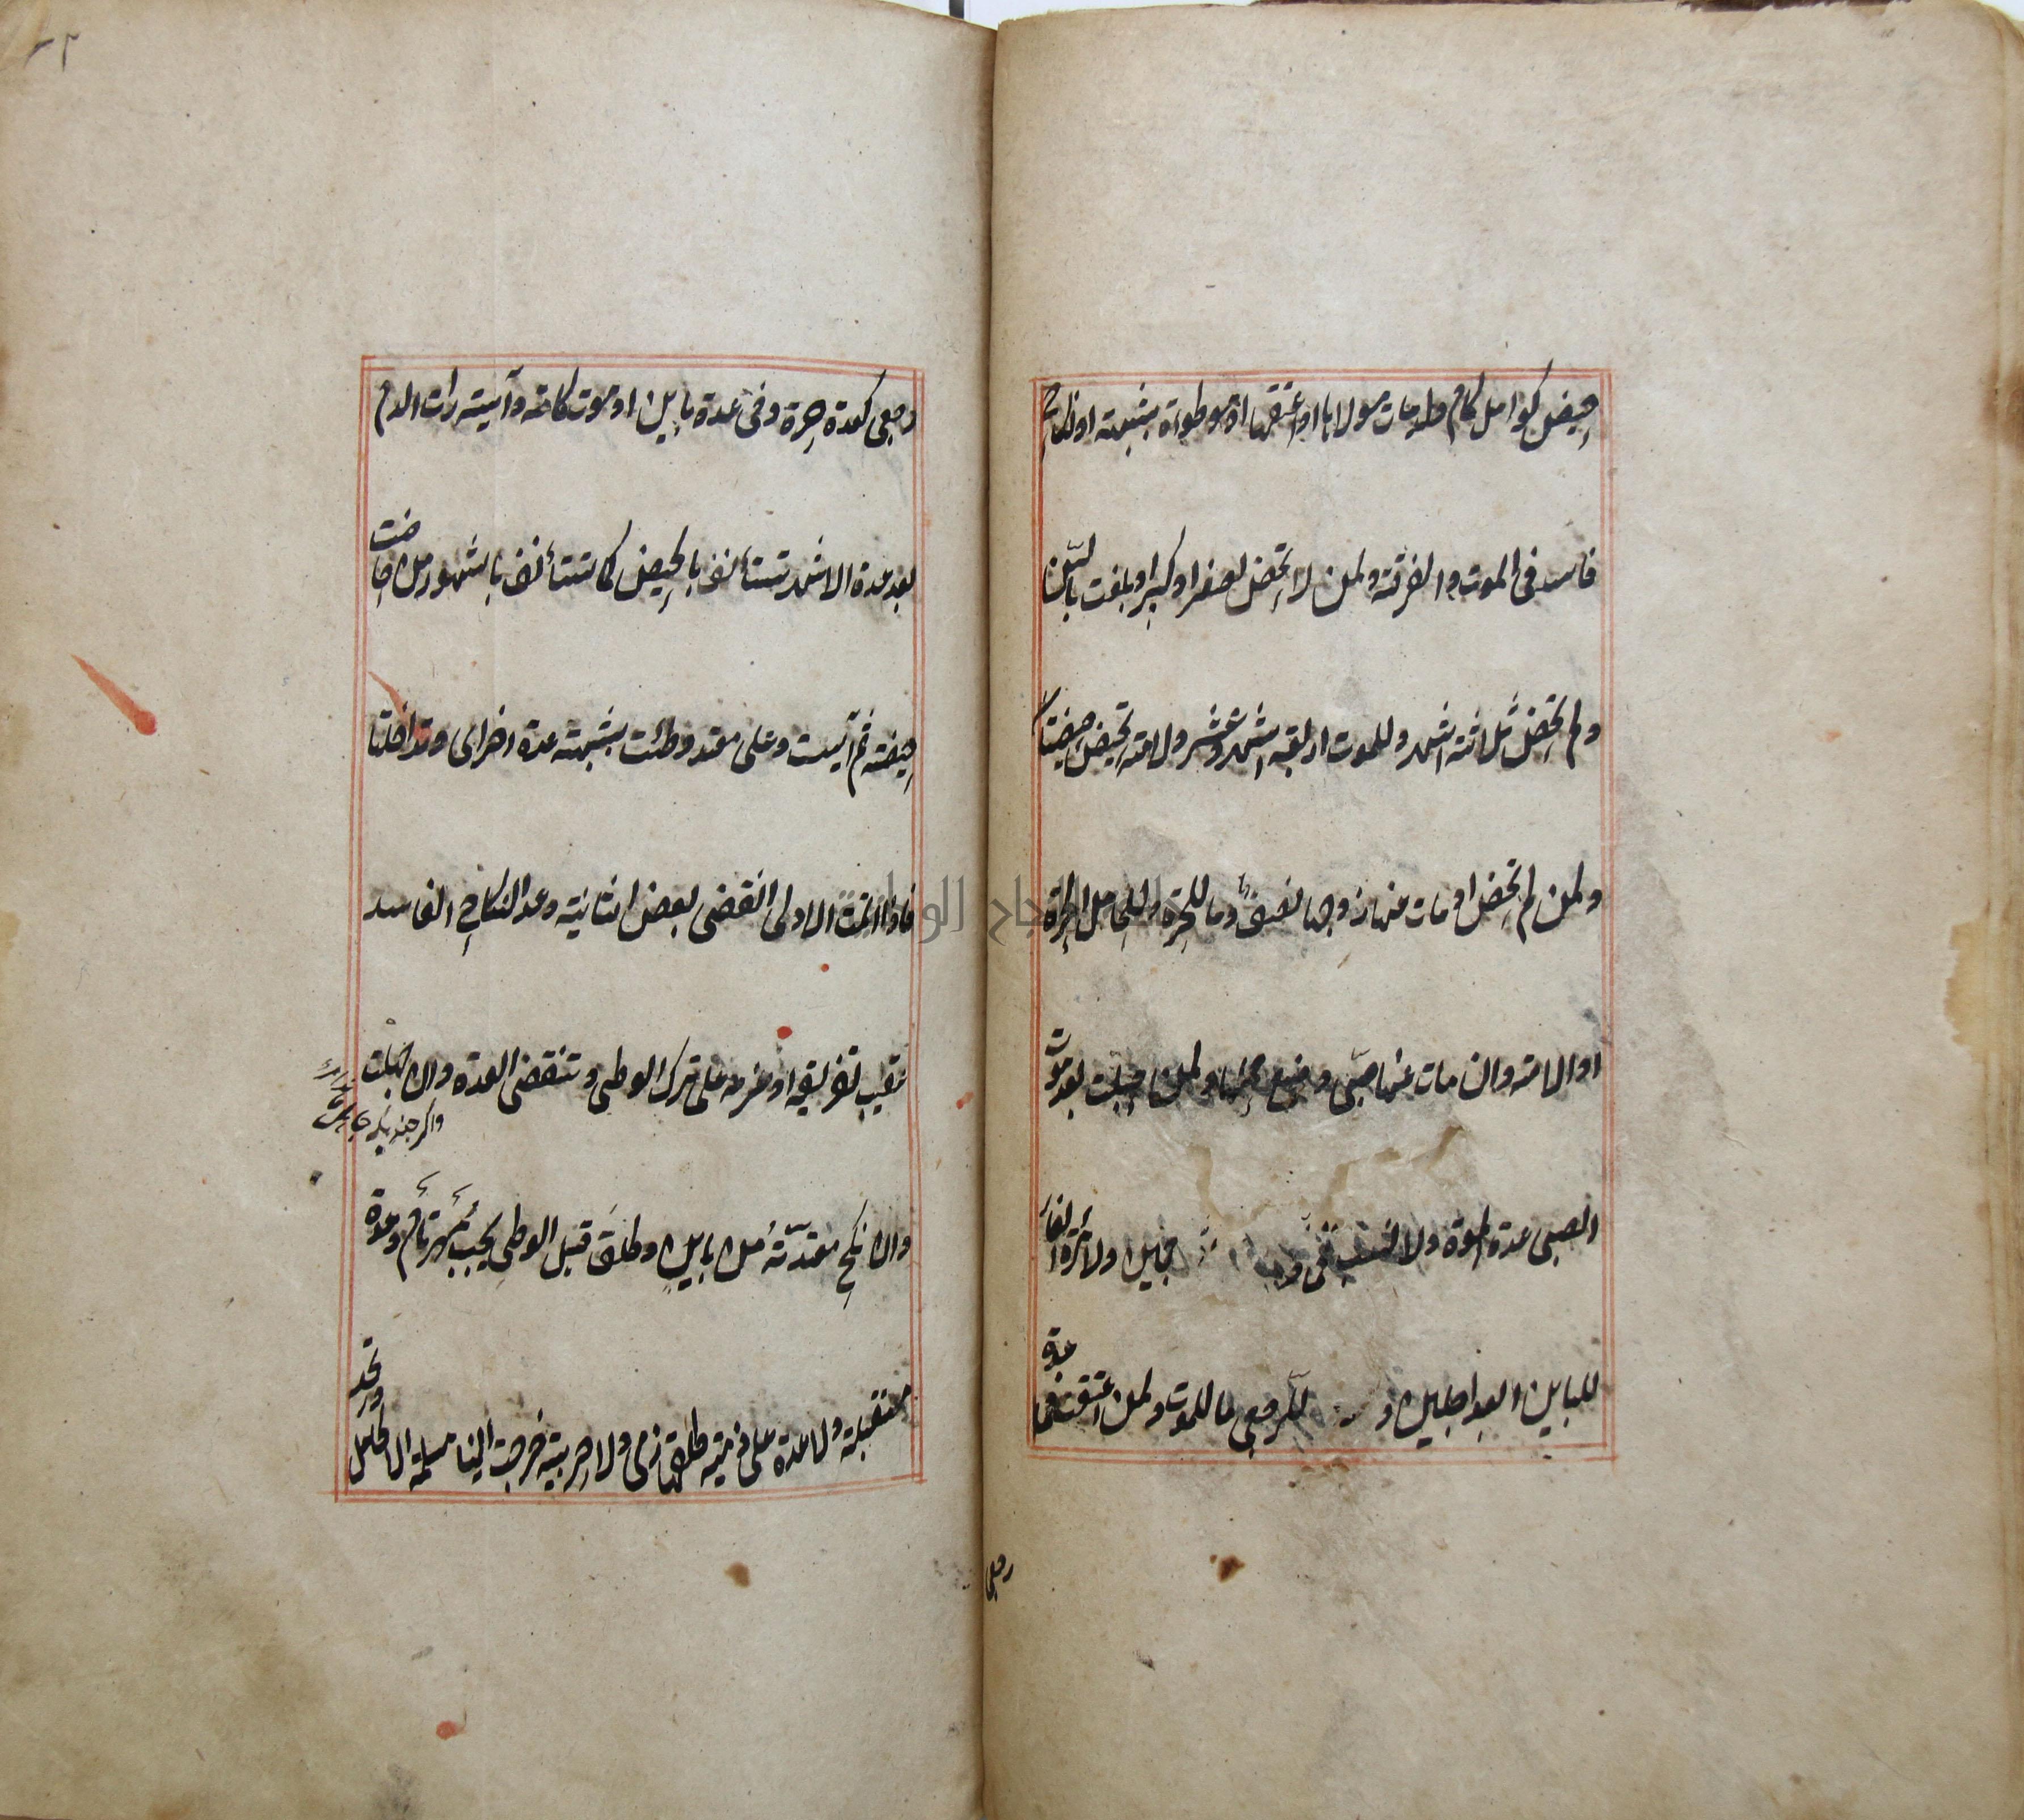 حيض كوامل كام ولد مات مولاها او اعتقها او موطوءة بشبهة او نكاح
فاسد في الموت والفرقة ولمن لا تحيض لصغر او كبر او بلغت بالسن
ولم تحض ثلاثة اشهر وللموت اربعة اشهر وعشر ولامة تحيض حيضتان
ولمن لم تحض او مات عنها زوجها نصف ما للحرة وللحامل الحرة
او الامة وان مات عنها صبى وضع حملها ولمن حبلت بعد موت
الصبى عدة الموت ولا نسب فى ولامرأة الفار
للباين ابعد اجلين و للرجعى ما للموت ولمن اعتقت فى عدة
رجعى
رجعى كعدة حرة وفى عدة باين او موت كامة وآيسة رات الدم
بعد عدة الاشهر تستأنف بالحيض كما تستأنف بالشهور من حاضت
حيضة ثم آيست وعلى معتدة وطئت بشبهة عدة اخرى وتداخلتا
فاذا تمت الاولى انقضى بعض الثانية وعدة النكاح الفاسد
عقيب تفريقه او عزمه على ترك الوطى وتنقضى العدة وان جهلت
وان نكح معتدته من باين وطلق قبل الوطى يجب مهر تام وعدة
مستقبلة ولا عدة على ذمية طلقها ذمى ولا حربية خرجت الينا مسلمة الا الحامل
وتحد